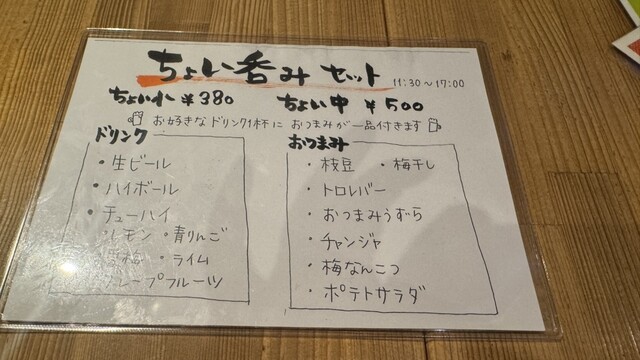 ちょい呑みセット 11:30～17:00
ちょい小 ¥380 ちょい中 ¥500
お好きなドリンク1杯に おつまみが一品付きます
ドリンク
・生ビール
・ハイボール
・チューハイ
レモン ・青りんご
・ライム
グレープフルーツ
おつまみ
・枝豆 ・梅干し
・トロレバー
・おつまみうずら
・チャンジャ
・梅なんこつ
・ポテトサラダ